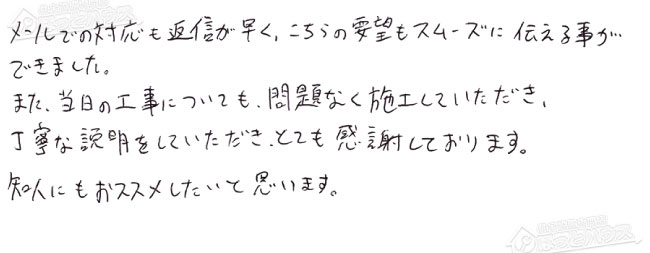 メールでの対応も返信が早く、こちらの要望もスムーズに伝える事が
できました。
また、当日の工事についても、問題なく施工していただき、
丁寧な説明をしていただき、とても感謝しております。
知人にもおススメしたいと思います。